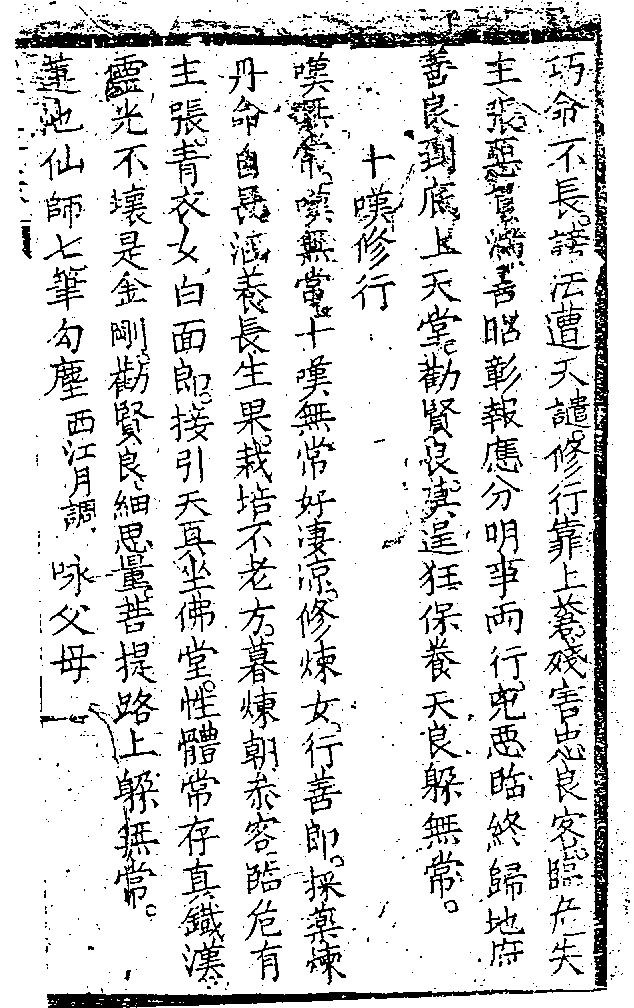 巧命不長。謗法遭天譴。修行靠上蒼。殘害忠良客。臨危失
主張。惡貫滿善昭彰報應分明事兩行。兇惡臨終歸地府
善良到底上天堂。勸賢良。莫逞狂保養天良躲無常。
十嘆修行
嘆無常。嘆無常。十嘆無常好凄涼。修煉女。行善郎。採藥煉
丹命自長。涵養長生果。栽培不老方。暮煉朝叅客。臨危有
主張。青衣女白面郎。接引天真坐佛堂。性體常存真鐵漢
靈光不壞是金剛。勸賢良。細思量。菩提路上躲無常。
蓮池仙師七筆勾塵西江月調 咏父母